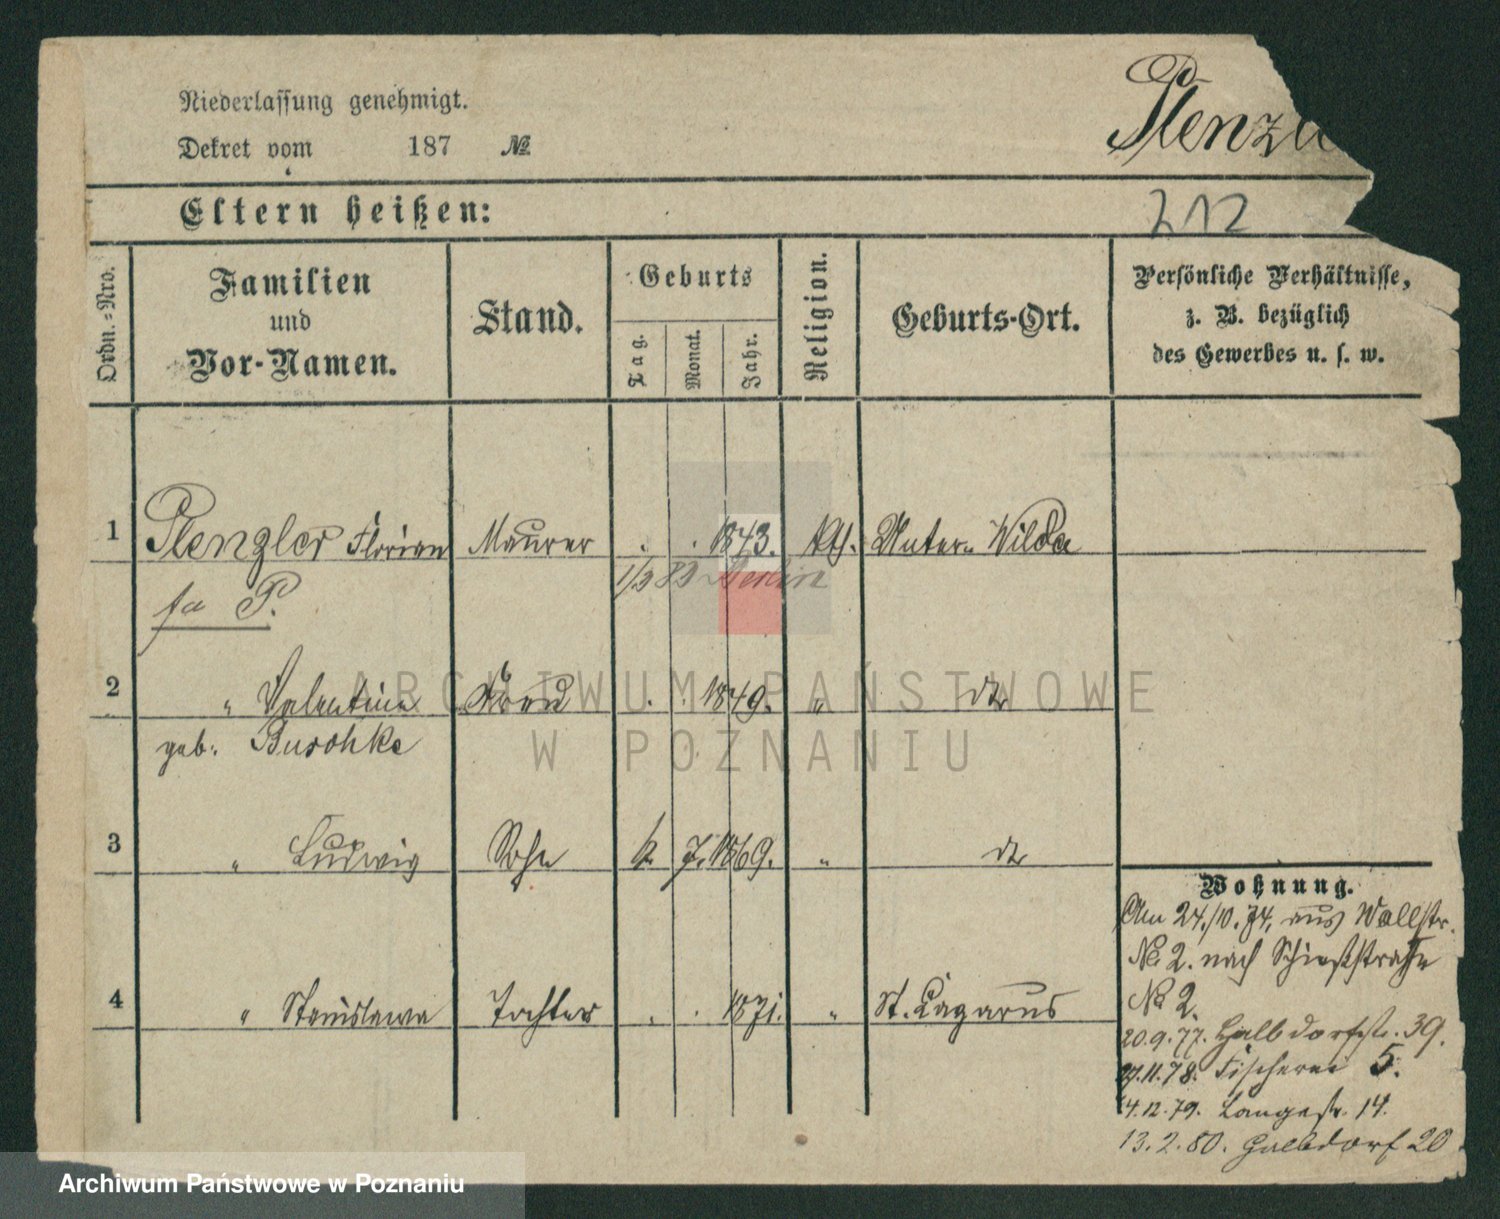 Niederlassung genehmigt.
Dekret vom 187 №
Plenzle
Eltern heißen:
212
Ordn.=Nro.
Familien
und
Vor-Namen.
Stand.
Geburts
Tag.
Monat.
Jahr.
Religion.
Geburts-Ort.
Persönliche Verhältnisse,
z. B. bezüglich
des Gewerbes u. s. w.
1 Plenzler Florian Maurer . . 1843. kth. Unter-Wilda
1/3 83 Berlin
fa P.
2 " Valentine Frau . . 1849. " dto
geb. Buschke
3 " Ludwig Sohn 7. 1869. " dto
Wohnung.
Am 24./10.74. aus Wallstr.
No 2. nach Schießstraße
No 2.
4 " Stanislawa Tochter . . 1871. " St. Lazarus
20.9.77. Halbdorfstr. 39.
27.11.78. Fischerei 5.
4.12.79. Langestr. 14.
13.2.80. Halbdorf 20
ARCHIWUM PAŃSTWOWE
W POZNANIU
Archiwum Państwowe w Poznaniu